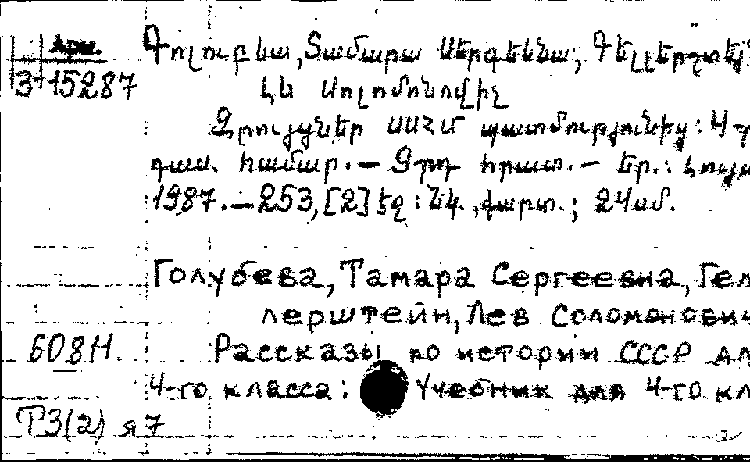 Арм.
3-15287
Գոլուբևա, Տամարա Սերգեևնա, Գելլերշտեյ
Լև Սոլոմոնովիչ
Զրույցներ ՍՍՀՄ պատմությունից: 4-
դաս. համար.— 9-րդ հրատ.— Եր.: Լույս
1987.—253,[2] էջ: նկ., քարտ.; 24սմ.
Голубева, Тамара Сергеевна, Гел
лерштейн, Лев Соломонович
608Н. Рассказы по истории СССР дл
4-го класса: Учебник для 4-го кл
Т3(2) я7